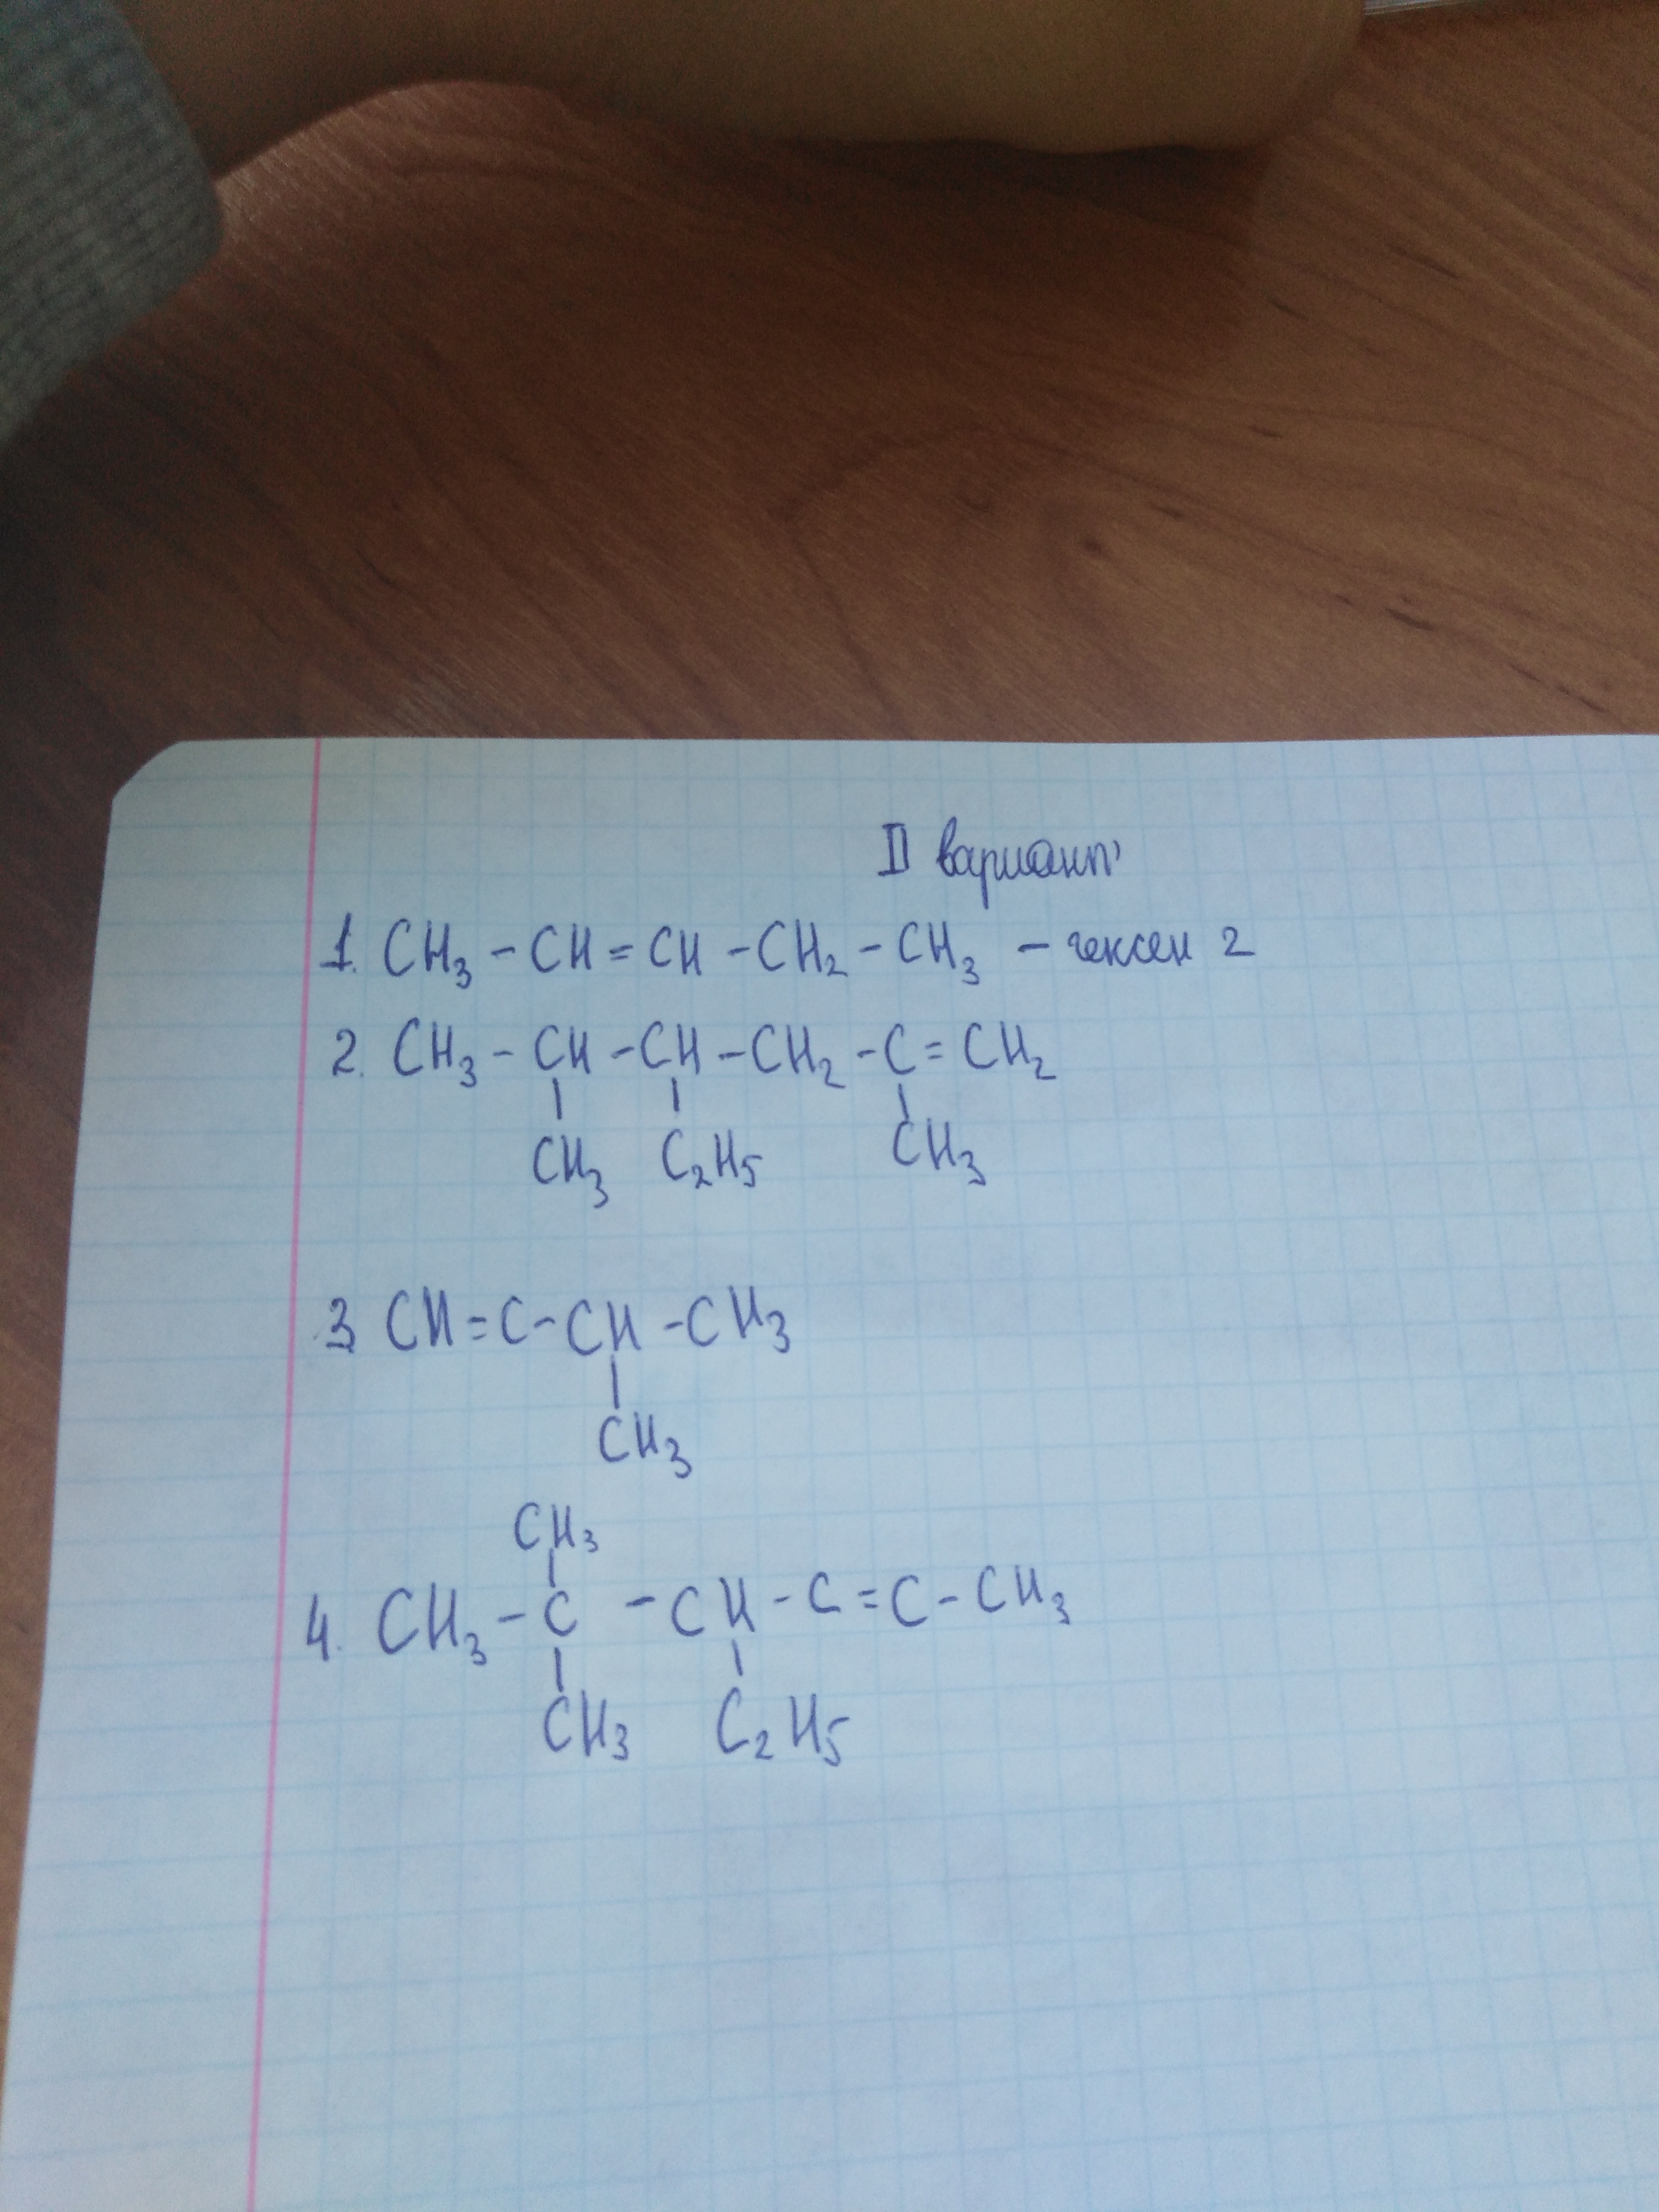 II вариант
1. CH₃ - CH = CH - CH₂ - CH₃ - гексен 2
2. CH₃ - CH - CH - CH₂ - C = CH₂
| | |
CH₃ C₂H₅ CH₃
3 CH = C - CH - CH₃
|
CH₃
CH₃
|
4. CH₃ - C - CH - C = C - CH₃
| |
CH₃ C₂H₅